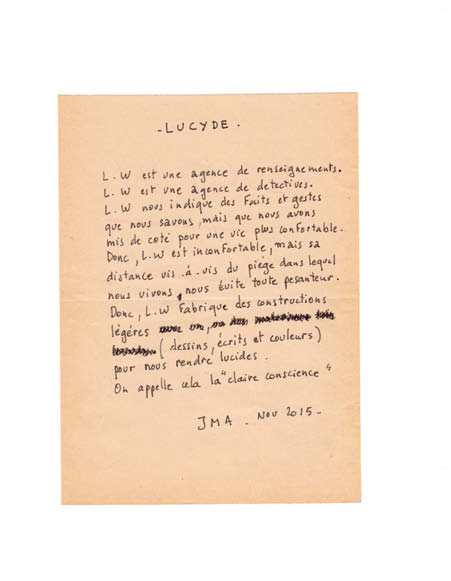 - LUCYDE .
L.W est une agence de renseignements.
L.W est une agence de détectives.
L.W nous indique des Faits et gestes
que nous savons, mais que nous avons
mis de coté pour une vie plus confortable.
Donc, L.W est inconfortable, mais sa
distance vis.à.vis du piège dans lequel
nous vivons, nous évite toute pesanteur.
Donc, L.W Fabrique des constructions
légéres
(dessins, écrits et couleurs)
pour nous rendre lucides.
On appelle cela la "claire conscience"
JMA . Nov 2015 -